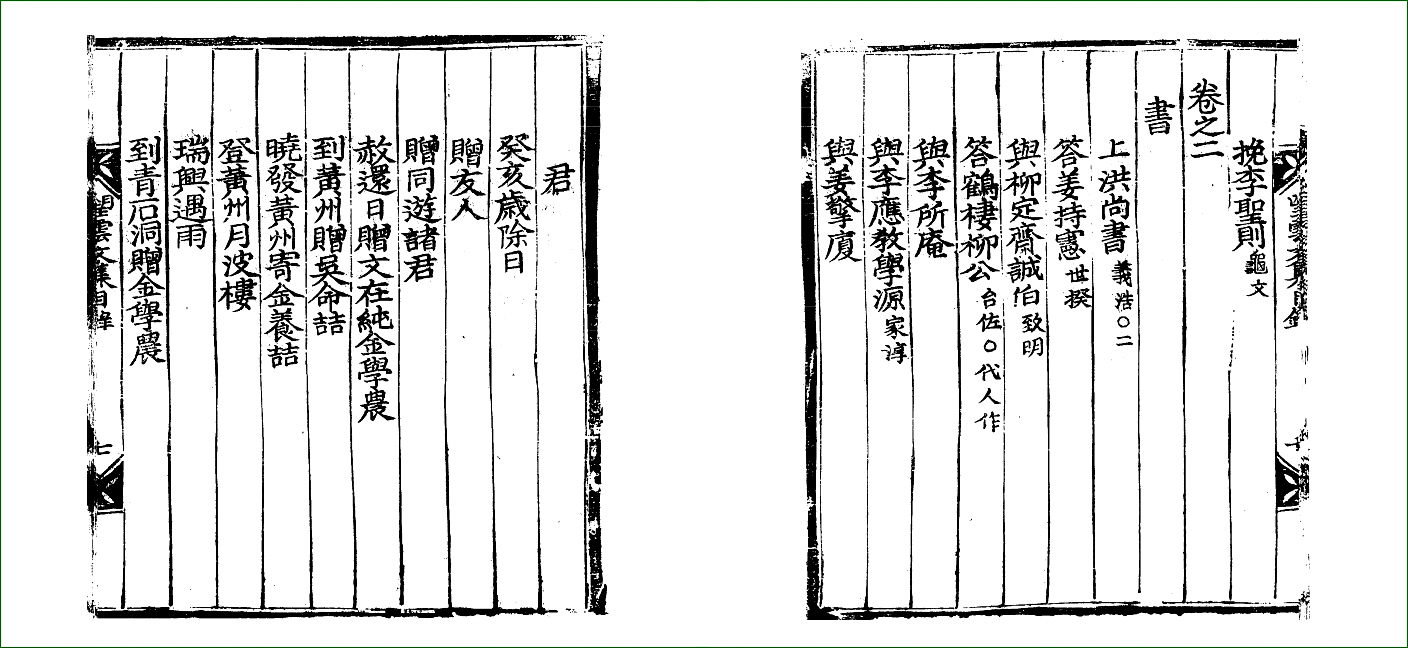 君
癸亥歲除日
贈友人
贈同遊諸君
赦還日贈文在純金學農
到黃州贈吳命喆
曉發黃州寄金養喆
登黃州月波樓
瑞興遇雨
到青石洞贈金學農
望雲文集目錄 七
挽李聖則 龜文
卷之二
書
上洪尚書 義浩○二
答姜持憲 世揆
與柳定齋誠伯 致明
答鶴棲柳公 台佐○代人作
與李所庵
與李應教學源 家淳
與姜擎廈